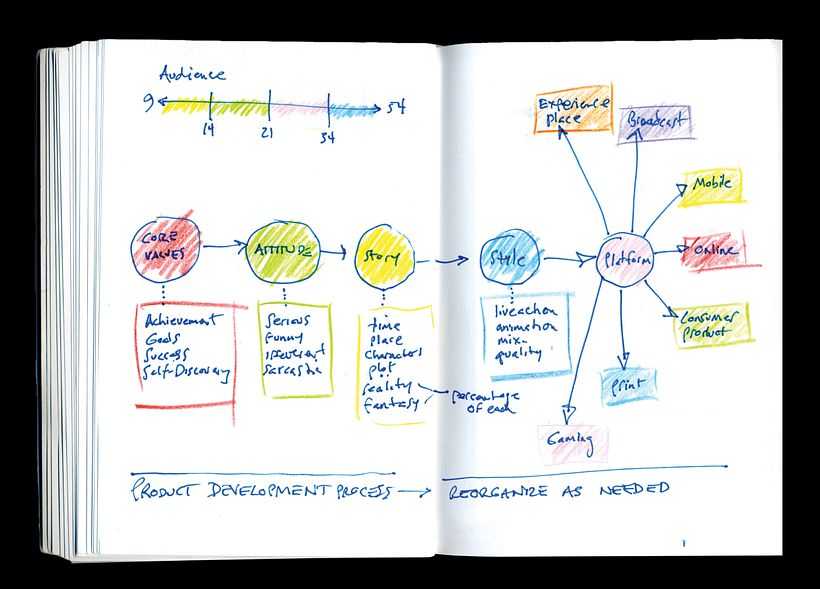 Audience
9
54
14
21
34
Experience
place
Broadcast
Mobile
Online
Consumer
product
Print
Gaming
CORE
VALUES
ATTITUDE
Story
Style
Platform
Achievement
Goals
Success
Self-Discovery
Serious
Funny
Irreverent
Sarcastic
time
place
characters
plot
reality
fantasy
percentage
of each
liveaction
animation
mix-
quality
PRODUCT DEVELOPMENT PROCESS
REORGANIZE AS NEEDED